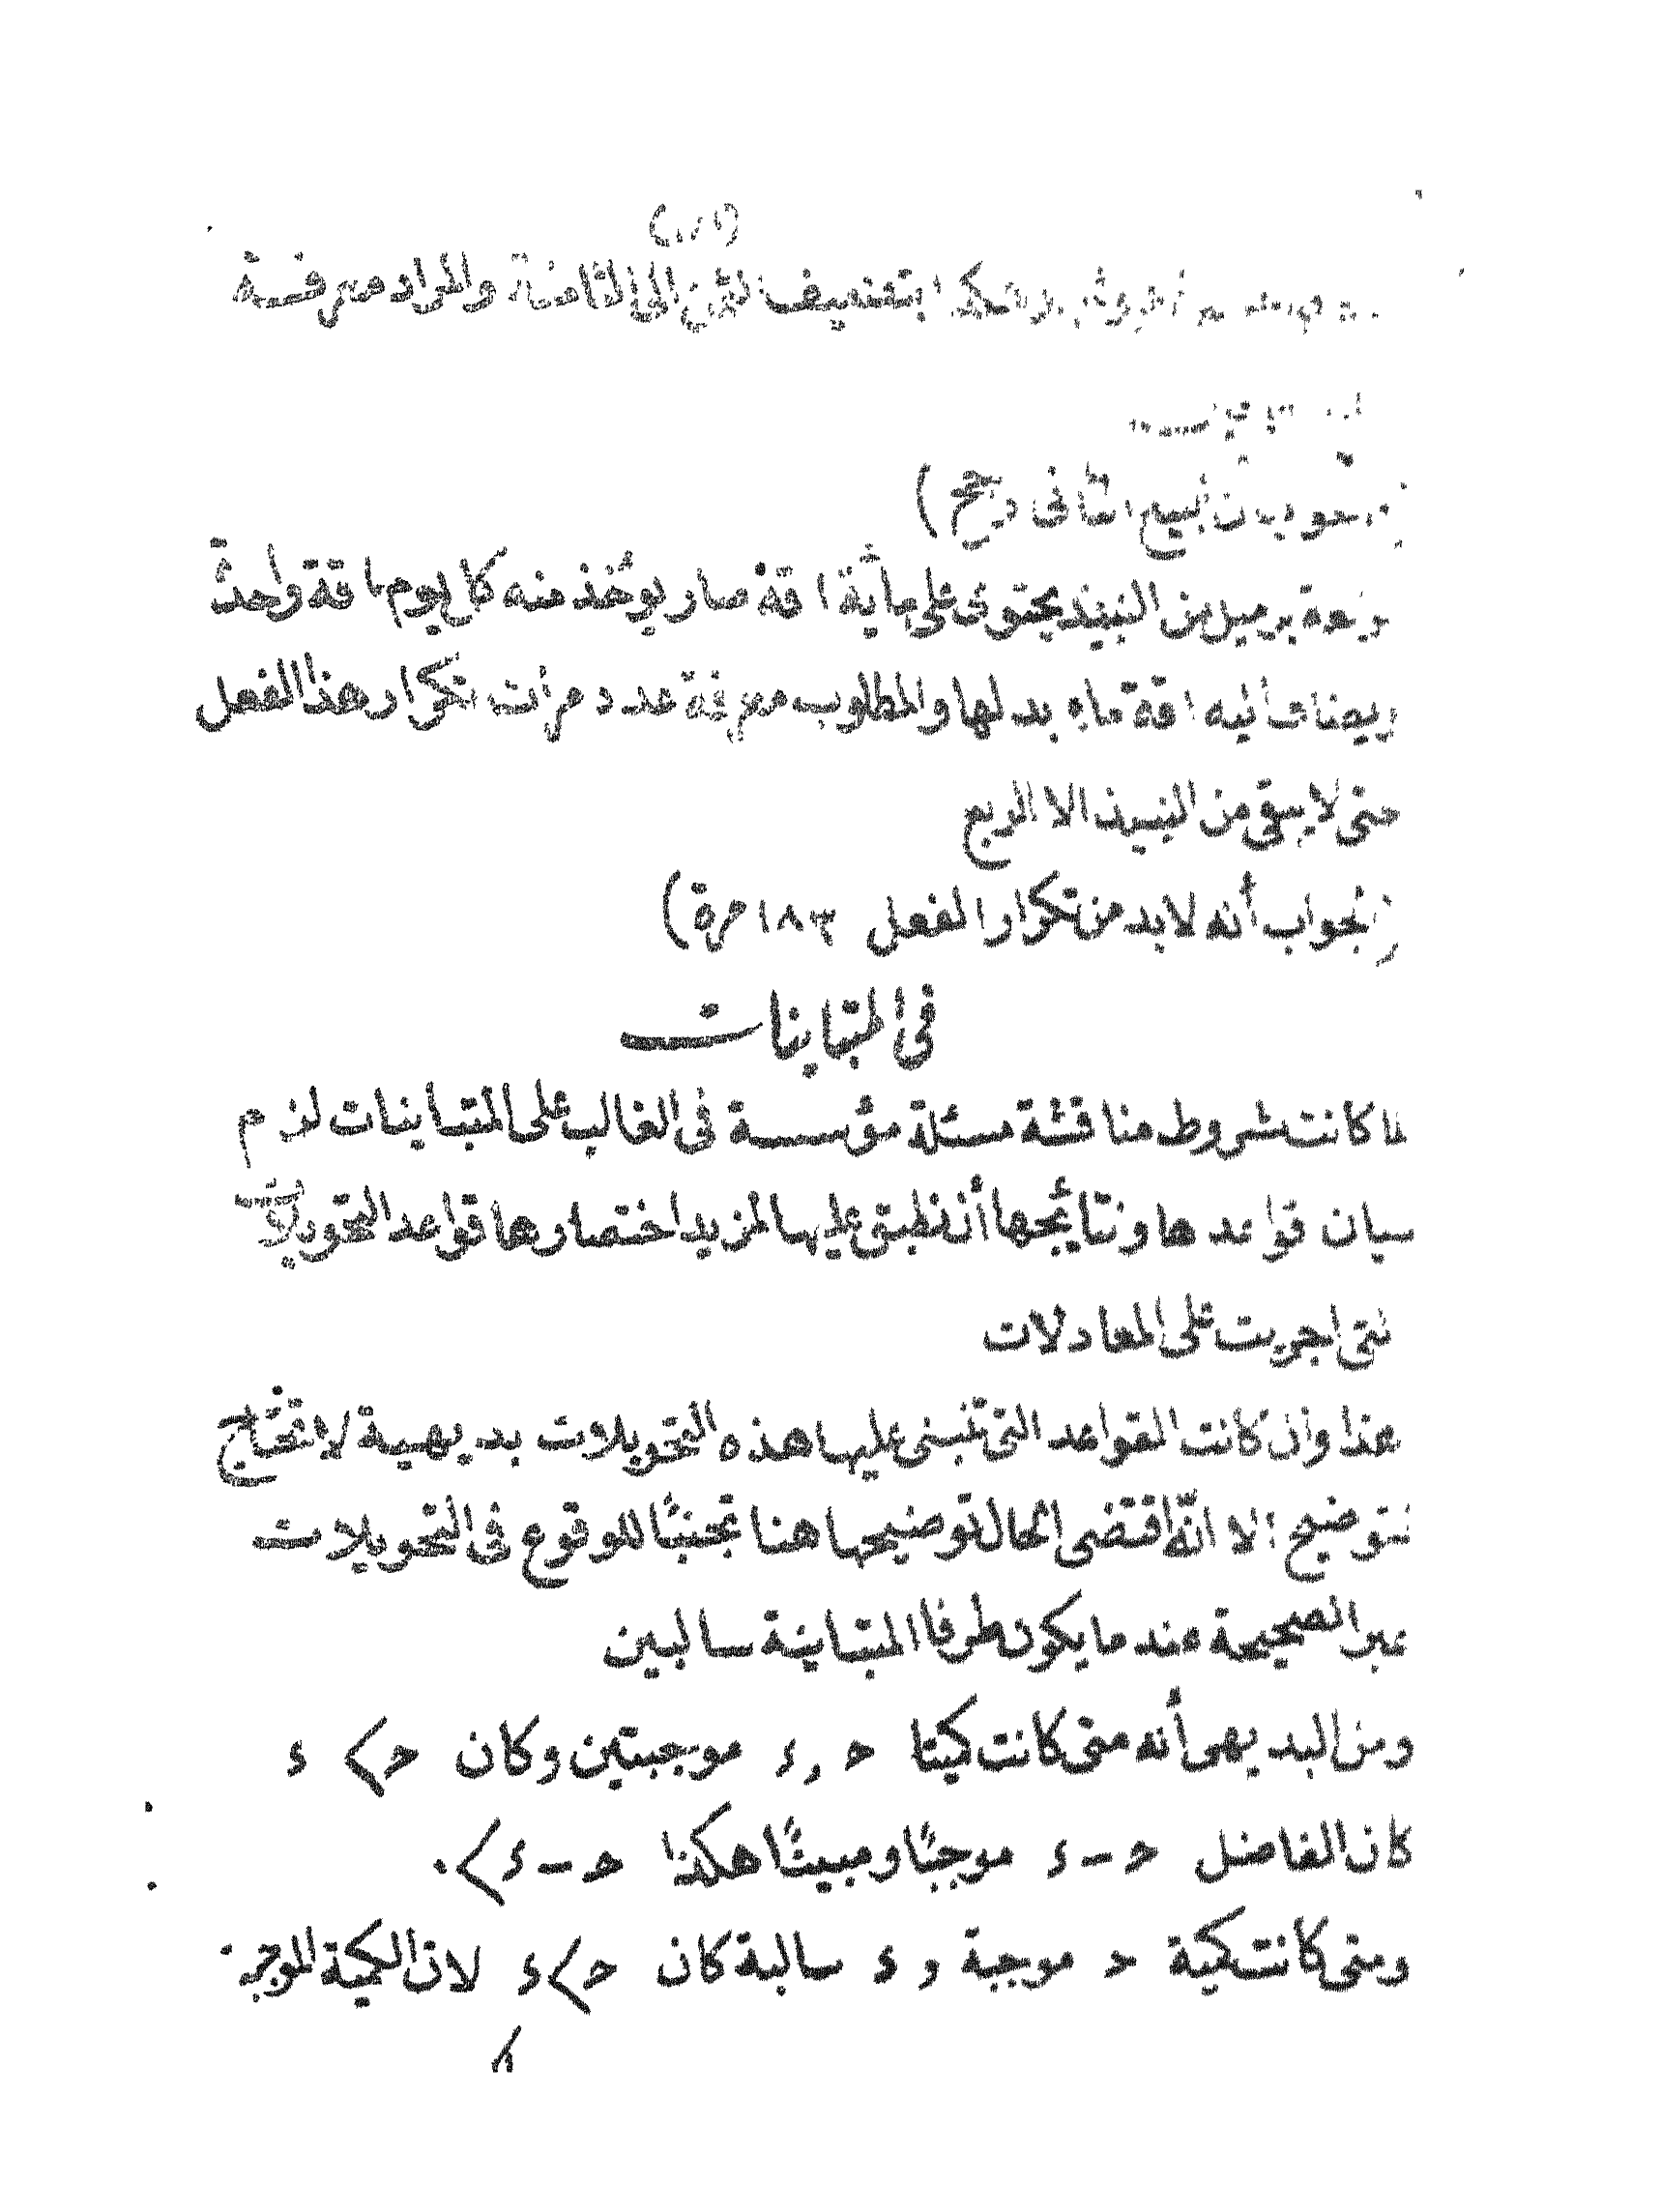 وهكذا بتضعيف الثمن الى الثامنة والمراد معرفة
بيع الثانى درجح)
برميل من النبيذ يحتوى على مائة اقة صار يوخذ منه كل يوم اقة واحدة
ويضاف اليه اقة ماء بدلها والمطلوب معرفة عدد مرات تكرار هذا الفعل
حتى لا يبقى من النبيذ الا الربع
الجواب أنه لا بد من تكرار الفعل ١٨٣ مرة)
فى المتباينات
لما كانت شروط مناقشة مسئلة مؤسسة فى الغالب على المتباينات لزم
بيان قواعدها ونتائجها أن نطبق عليها لمزيد اختصارها قواعد التحويلات
التى اجريت على المعادلات
هذا وان كانت القواعد التى تنبنى عليها هذه التحويلات بديهية لا تحتاج
لتوضيح الا انّه اقتضى الحال توضيحها هنا تجنبًا للوقوع فى التحويلات
غير الصحيحة عند ما يكون طرفا المتباينة سالبين
ومن البديهى أنه متى كانت كميتا ح , ء موجبتين وكان ح > ء
كان الفاضل ح - ء موجبًا ومبينًا هكذا ح - ء > ٠
ومتى كانت كمية ح موجبة و ء سالبة كان ح > ء لان الكمية الموجبة